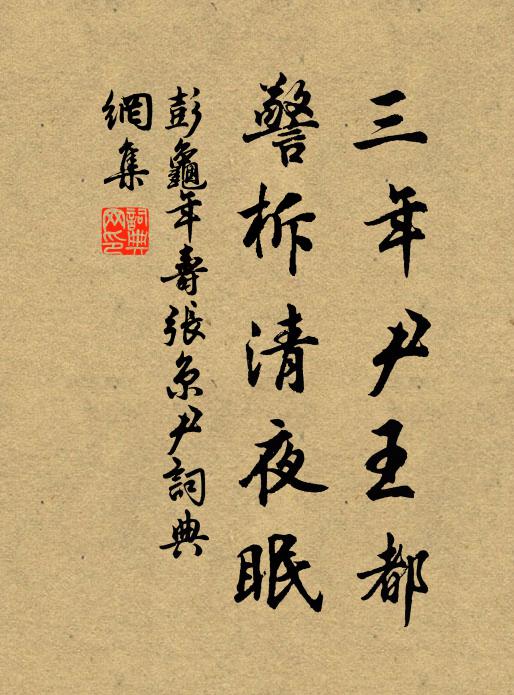 三年尹王都
警柝清夜眠
彭龜年壽張京尹詞典
網集
詞典
网印